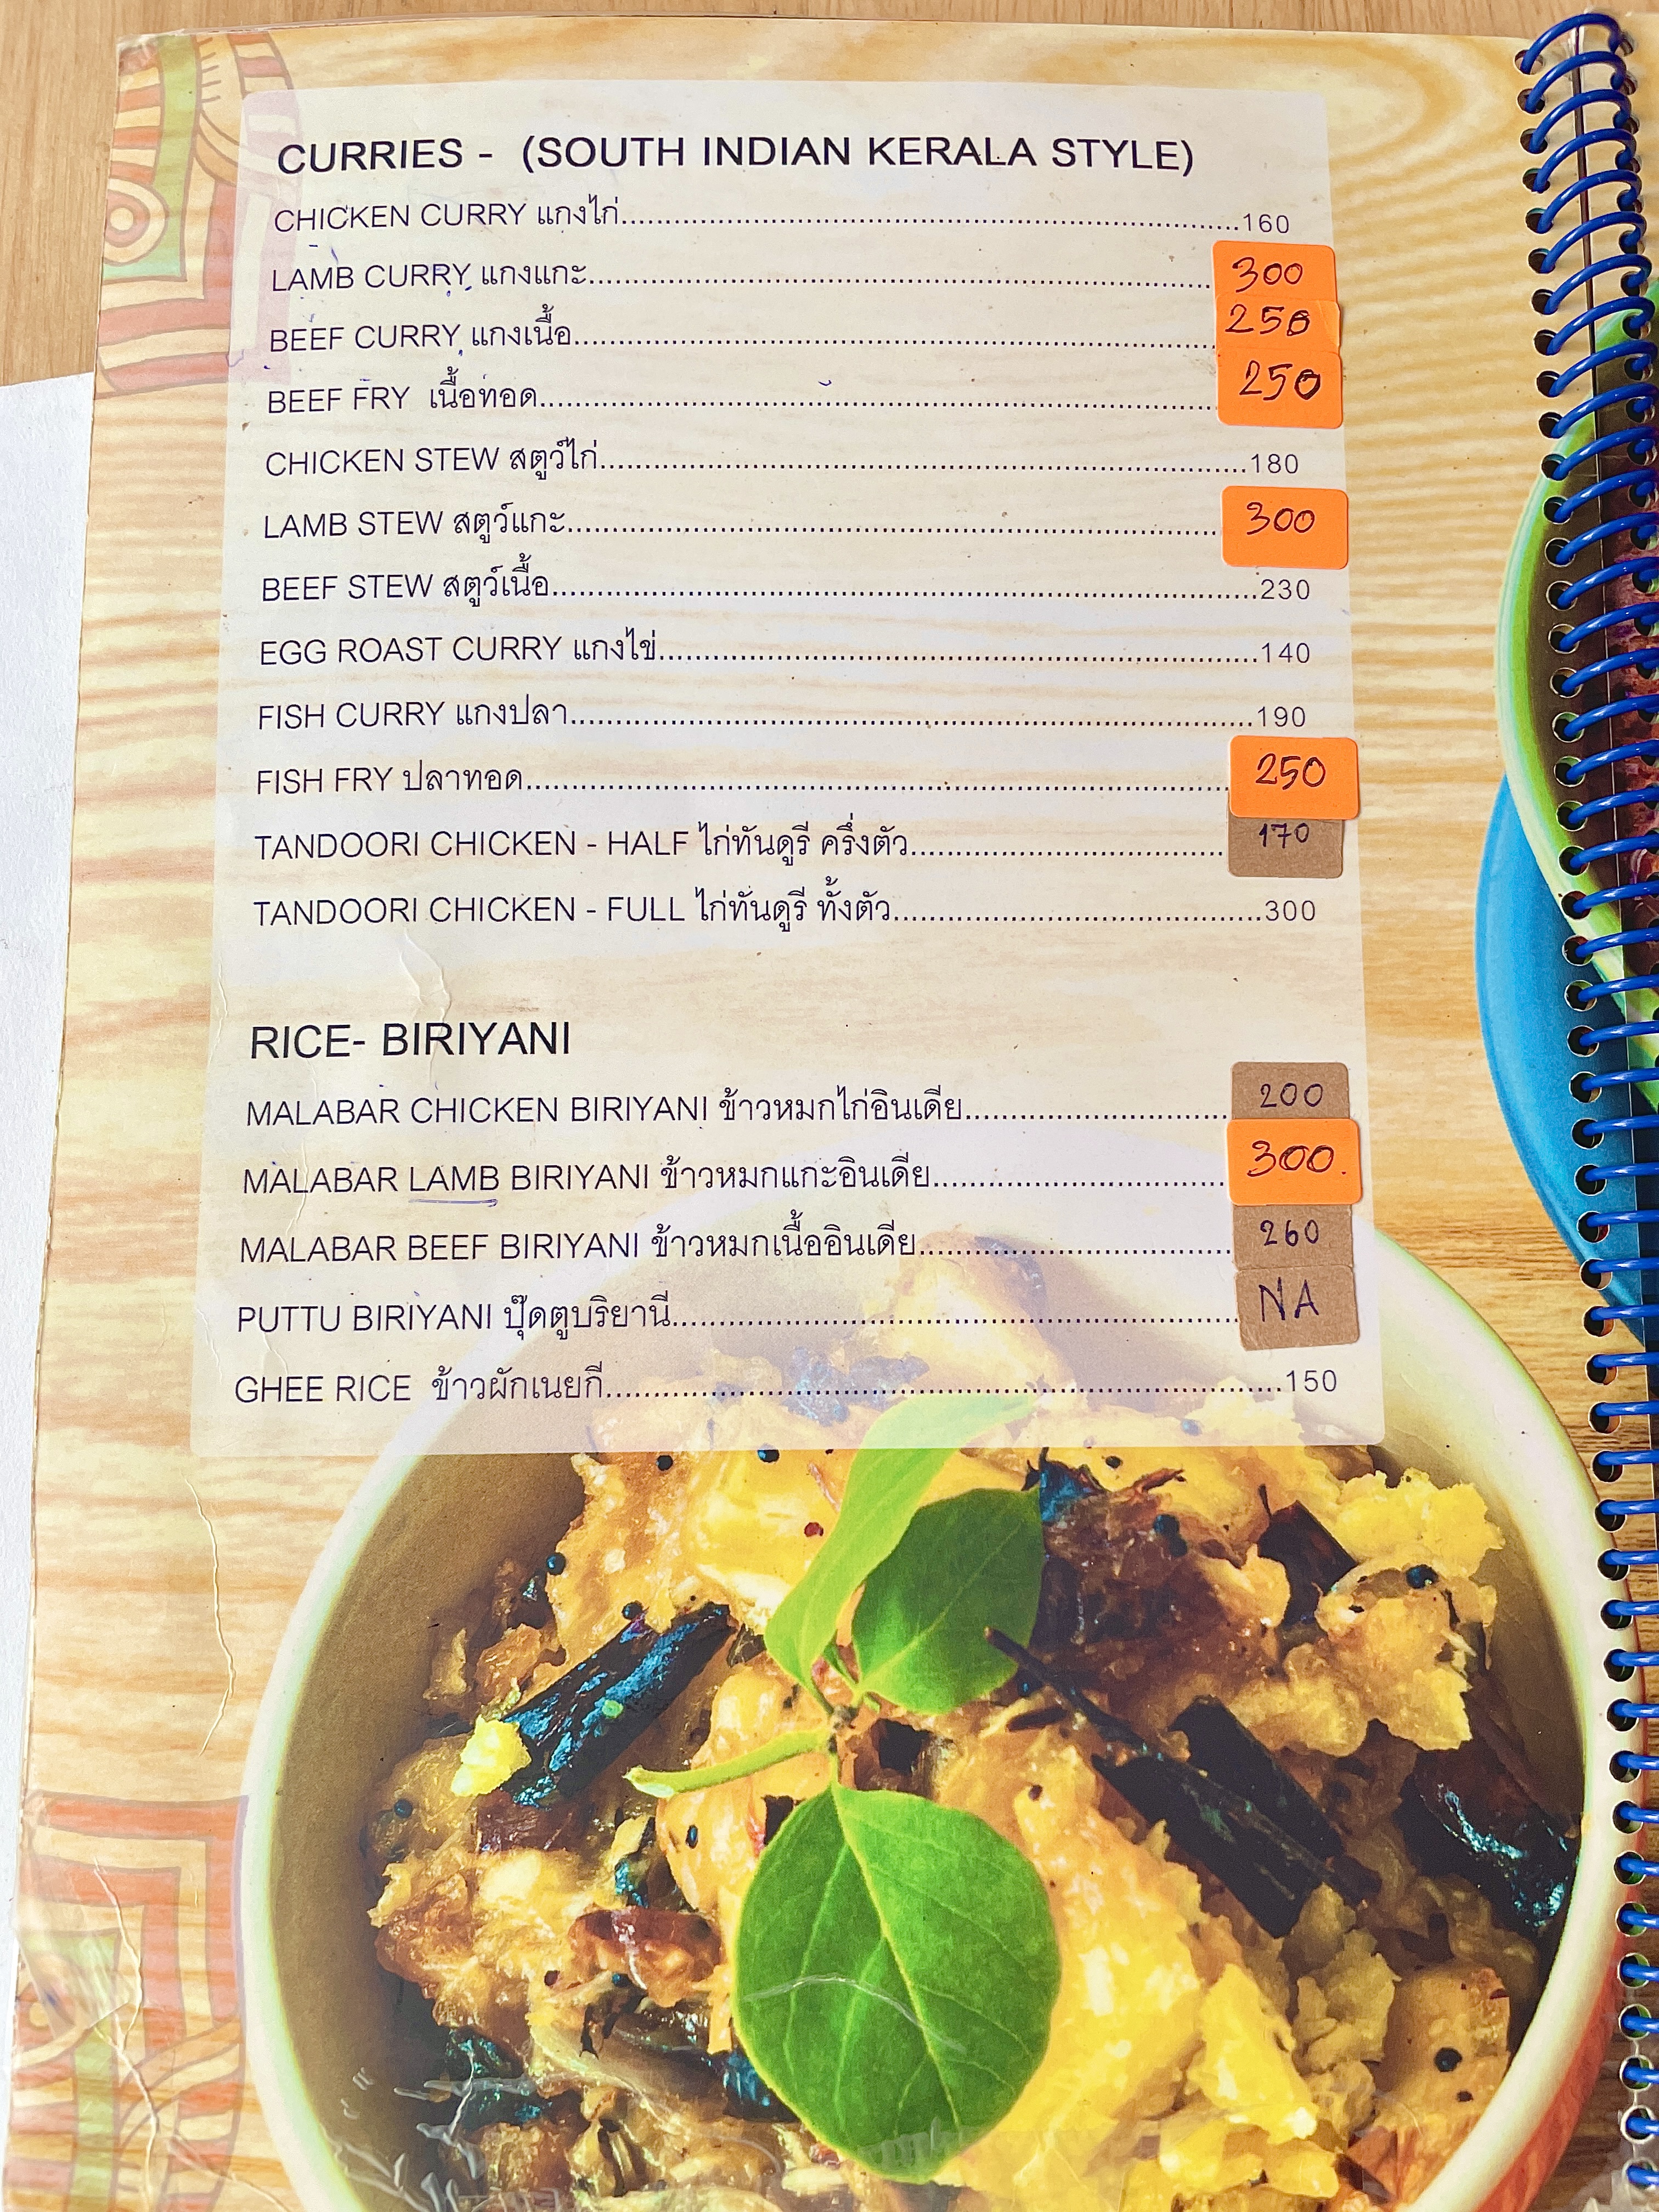 CURRIES - (SOUTH INDIAN KERALA STYLE)
CHICKEN CURRY แกงไก่..........160
LAMB CURRY แกงแกะ..........300
BEEF CURRY แกงเนื้อ..........250
BEEF FRY เนื้อทอด..........250
CHICKEN STEW สตูว์ไก่..........180
LAMB STEW สตูว์แกะ..........300
BEEF STEW สตูว์เนื้อ..........230
EGG ROAST CURRY แกงไข่..........140
FISH CURRY แกงปลา..........190
FISH FRY ปลาทอด..........250
TANDOORI CHICKEN - HALF ไก่ทันดูรี ครึ่งตัว..........170
TANDOORI CHICKEN - FULL ไก่ทันดูรี ทั้งตัว..........300
RICE- BIRIYANI
MALABAR CHICKEN BIRIYANI ข้าวหมกไก่อินเดีย..........200
MALABAR LAMB BIRIYANI ข้าวหมกแกะอินเดีย..........300.
MALABAR BEEF BIRIYANI ข้าวหมกเนื้ออินเดีย..........260
PUTTU BIRIYANI ปุ๊ดตูบริยานี..........NA
GHEE RICE ข้าวผักเนยกี..........150